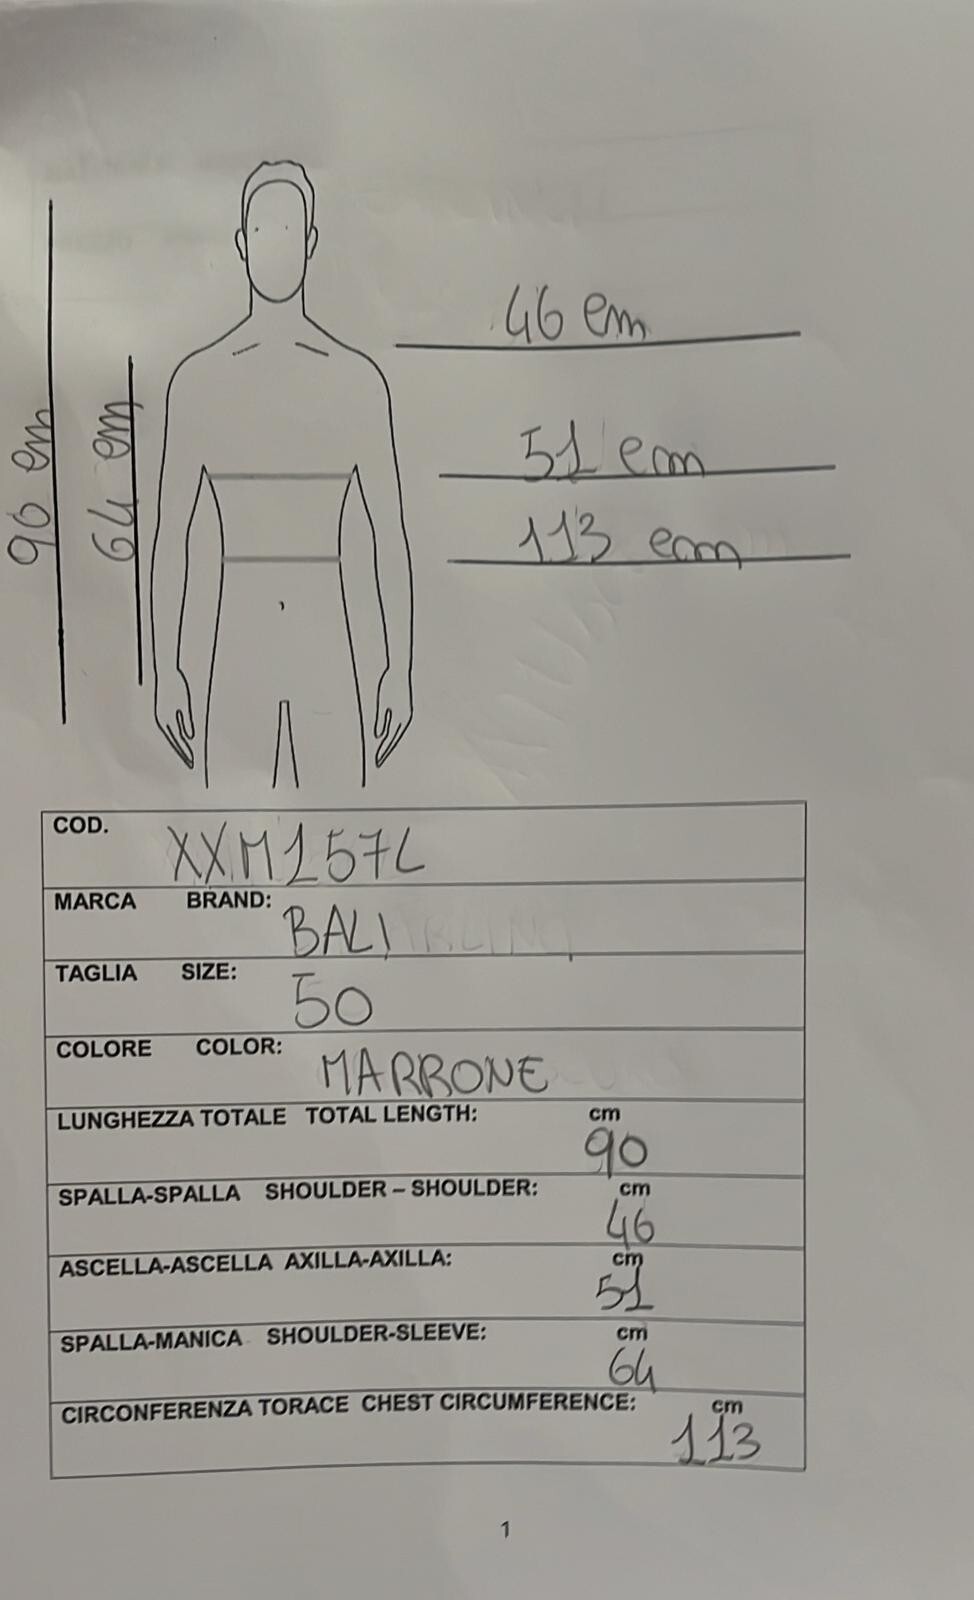 46 cm
51 cm
113 cm
90 cm
64 cm
COD. XXM157L
MARCA BRAND: BALI
TAGLIA SIZE: 50
COLORE COLOR: MARRONE
LUNGHEZZA TOTALE TOTAL LENGTH: cm 90
SPALLA-SPALLA SHOULDER – SHOULDER: cm 46
ASCELLA-ASCELLA AXILLA-AXILLA: cm 51
SPALLA-MANICA SHOULDER-SLEEVE: cm 64
CIRCONFERENZA TORACE CHEST CIRCUMFERENCE: cm 113
1